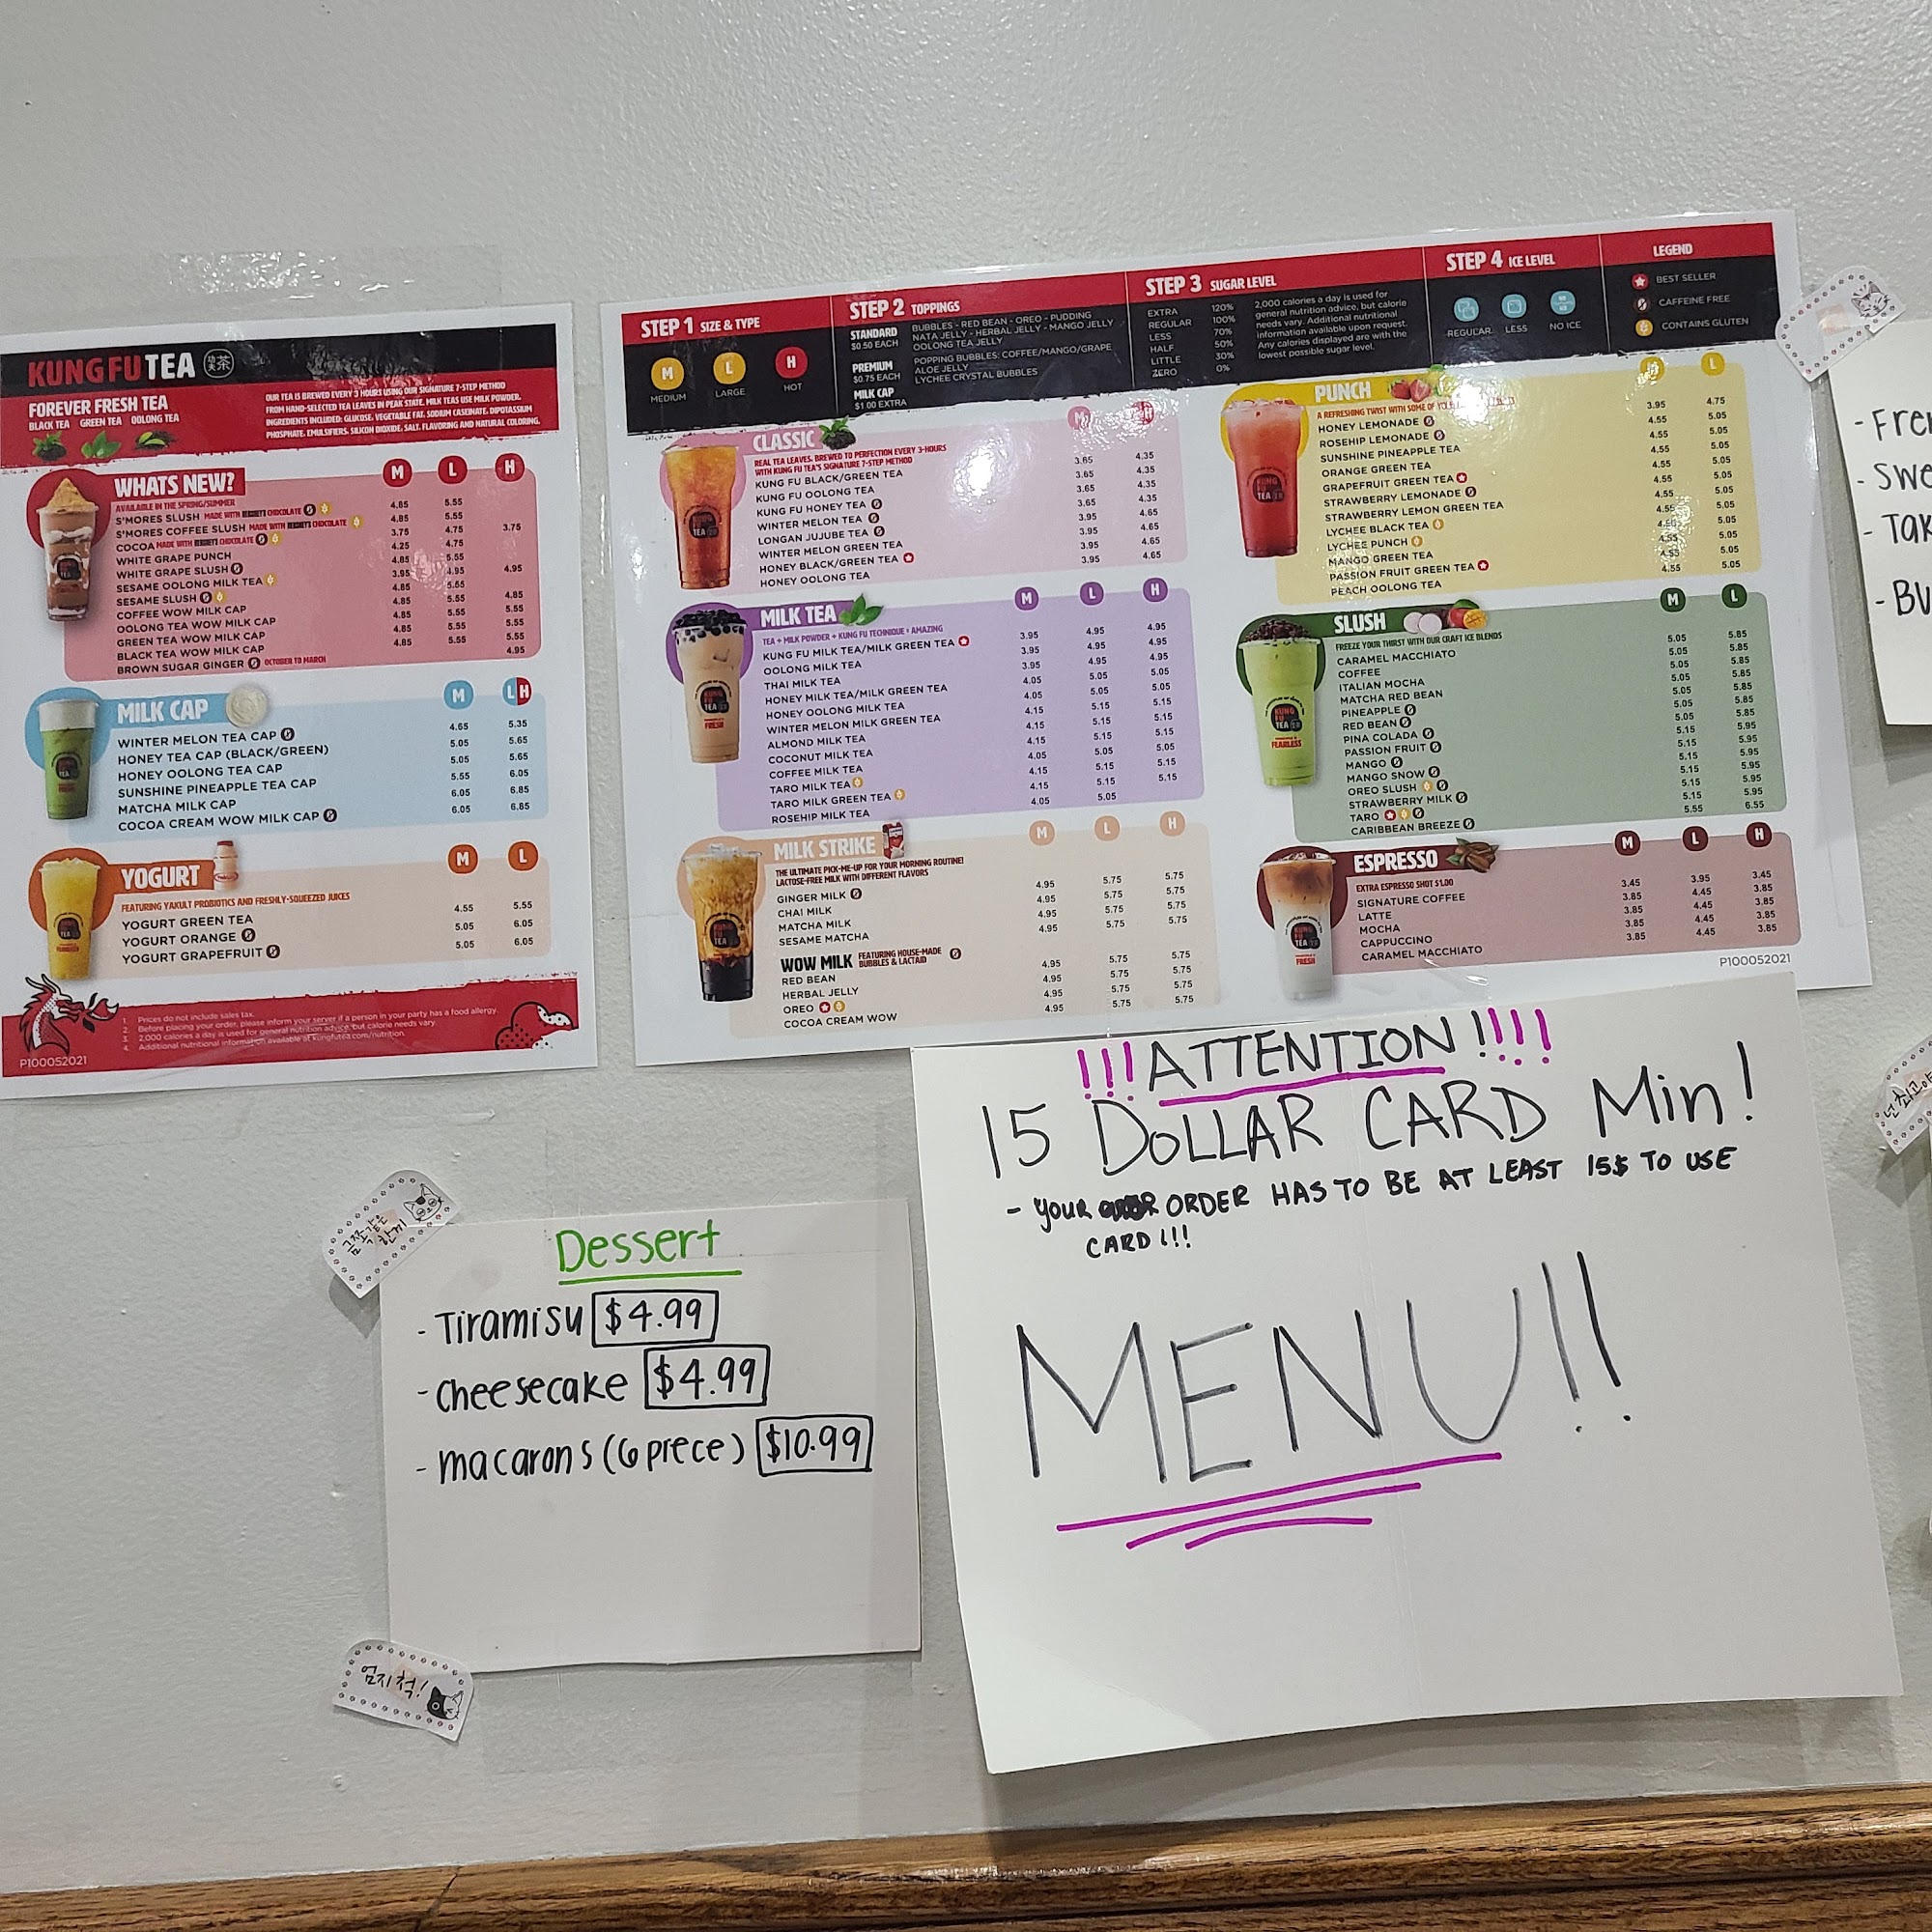 KUNG FU TEA
FOREVER FRESH TEA
BLACK TEA GREEN TEA OOLONG TEA
OUR TEA IS BREWED EVERY 3 HOURS USING OUR SIGNATURE 7-STEP METHOD
FROM HAND-SELECTED TEA LEAVES IN PEAK STATE. MILK TEAS USE MILK POWDER.
INGREDIENTS INCLUDED: GLUCOSE, VEGETABLE FAT, SODIUM CASEINATE, DIPOTASSIUM
PHOSPHATE, EMULSIFIERS, SILICON DIOXIDE, SALT, FLAVORING AND NATURAL COLORING.
WHATS NEW? M L H
AVAILABLE IN THE SPRING/SUMMER
S'MORES SLUSH MADE WITH HERSHEY'S CHOCOLATE 4.85 5.55
S'MORES COFFEE SLUSH MADE WITH HERSHEY'S CHOCOLATE 4.85 5.55
COCOA MADE WITH HERSHEY'S CHOCOLATE 3.75 4.75 3.75
WHITE GRAPE PUNCH 4.25 4.75
WHITE GRAPE SLUSH 4.85 5.55
SESAME OOLONG MILK TEA 3.95 4.95 4.95
SESAME SLUSH 4.85 5.55
COFFEE WOW MILK CAP 4.85 5.55 4.85
OOLONG TEA WOW MILK CAP 4.85 5.55 5.55
GREEN TEA WOW MILK CAP 4.85 5.55 5.55
BLACK TEA WOW MILK CAP 4.85 5.55 5.55
BROWN SUGAR GINGER OCTOBER TO MARCH 4.95
MILK CAP M L H
WINTER MELON TEA CAP 4.65 5.35
HONEY TEA CAP (BLACK/GREEN) 5.05 5.65
HONEY OOLONG TEA CAP 5.05 5.65
SUNSHINE PINEAPPLE TEA CAP 5.55 6.05
MATCHA MILK CAP 6.05 6.85
COCOA CREAM WOW MILK CAP 6.05 6.85
YOGURT M L
FEATURING YAKULT PROBIOTICS AND FRESHLY-SQUEEZED JUICES
YOGURT GREEN TEA 4.55 5.55
YOGURT ORANGE 5.05 6.05
YOGURT GRAPEFRUIT 5.05 6.05
1. Prices do not include sales tax.
2. Before placing your order, please inform your server if a person in your party has a food allergy.
3. 2,000 calories a day is used for general nutrition advice, but calorie needs vary.
4. Additional nutritional information available at kungfutea.com/nutrition.
P100052021
STEP 1 SIZE & TYPE
M L H
MEDIUM LARGE HOT
STEP 2 TOPPINGS
STANDARD
$0.50 EACH
BUBBLES - RED BEAN - OREO - PUDDING
NATA JELLY - HERBAL JELLY - MANGO JELLY
OOLONG TEA JELLY
PREMIUM
$0.75 EACH
POPPING BUBBLES: COFFEE/MANGO/GRAPE
ALOE JELLY
LYCHEE CRYSTAL BUBBLES
MILK CAP
$1.00 EXTRA
STEP 3 SUGAR LEVEL
EXTRA 120%
REGULAR 100%
LESS 70%
HALF 50%
LITTLE 30%
ZERO 0%
2,000 calories a day is used for
general nutrition advice, but calorie
needs vary. Additional nutritional
information available upon request.
Any calories displayed are with the
lowest possible sugar level.
STEP 4 ICE LEVEL
REGULAR LESS NO ICE
LEGEND
BEST SELLER
CAFFEINE FREE
CONTAINS GLUTEN
CLASSIC M H
REAL TEA LEAVES, BREWED TO PERFECTION EVERY 3-HOURS
WITH KUNG FU TEA'S SIGNATURE 7-STEP METHOD
KUNG FU BLACK/GREEN TEA 3.65 4.35
KUNG FU OOLONG TEA 3.65 4.35
KUNG FU HONEY TEA 3.65 4.35
WINTER MELON TEA 3.65 4.35
LONGAN JUJUBE TEA 3.95 4.65
WINTER MELON GREEN TEA 3.95 4.65
HONEY BLACK/GREEN TEA 3.95 4.65
HONEY OOLONG TEA 3.95 4.65
MILK TEA M L H
TEA + MILK POWDER + KUNG FU TECHNIQUE = AMAZING
KUNG FU MILK TEA/MILK GREEN TEA 3.95 4.95 4.95
OOLONG MILK TEA 3.95 4.95 4.95
THAI MILK TEA 3.95 4.95 4.95
HONEY MILK TEA/MILK GREEN TEA 4.05 5.05 5.05
HONEY OOLONG MILK TEA 4.05 5.05 5.05
WINTER MELON MILK GREEN TEA 4.15 5.15 5.15
ALMOND MILK TEA 4.15 5.15 5.15
COCONUT MILK TEA 4.15 5.15 5.15
COFFEE MILK TEA 4.05 5.05 5.05
TARO MILK TEA 4.15 5.15 5.15
TARO MILK GREEN TEA 4.15 5.15 5.15
ROSEHIP MILK TEA 4.05 5.05
MILK STRIKE M L H
THE ULTIMATE PICK-ME-UP FOR YOUR MORNING ROUTINE!
LACTOSE-FREE MILK WITH DIFFERENT FLAVORS
GINGER MILK 4.95 5.75 5.75
CHAI MILK 4.95 5.75 5.75
MATCHA MILK 4.95 5.75 5.75
SESAME MATCHA 4.95 5.75 5.75
WOW MILK FEATURING HOUSE-MADE
BUBBLES & LACTAID
RED BEAN 4.95 5.75 5.75
HERBAL JELLY 4.95 5.75 5.75
OREO 4.95 5.75 5.75
COCOA CREAM WOW 4.95 5.75 5.75
PUNCH M L
A REFRESHING TWIST WITH SOME OF
HONEY LEMONADE 3.95 4.75
ROSEHIP LEMONADE 4.55 5.05
SUNSHINE PINEAPPLE TEA 4.55 5.05
ORANGE GREEN TEA 4.55 5.05
GRAPEFRUIT GREEN TEA 4.55 5.05
STRAWBERRY LEMONADE 4.55 5.05
STRAWBERRY LEMON GREEN TEA 4.55 5.05
LYCHEE BLACK TEA 4.55 5.05
LYCHEE PUNCH 4.55 5.05
MANGO GREEN TEA 4.55 5.05
PASSION FRUIT GREEN TEA 4.55 5.05
PEACH OOLONG TEA 4.55 5.05
SLUSH M L
FREEZE YOUR THIRST WITH OUR CRAFT ICE BLENDS
CARAMEL MACCHIATO 5.05 5.85
COFFEE 5.05 5.85
ITALIAN MOCHA 5.05 5.85
MATCHA RED BEAN 5.05 5.85
PINEAPPLE 5.05 5.85
RED BEAN 5.05 5.85
PINA COLADA 5.05 5.85
PASSION FRUIT 5.15 5.95
MANGO 5.15 5.95
MANGO SNOW 5.15 5.95
OREO SLUSH 5.15 5.95
STRAWBERRY MILK 5.15 5.95
TARO 5.15 5.95
CARIBBEAN BREEZE 5.55 6.55
ESPRESSO M L H
EXTRA ESPRESSO SHOT $1.00
SIGNATURE COFFEE 3.45 3.95 3.45
LATTE 3.85 4.45 3.85
MOCHA 3.85 4.45 3.85
CAPPUCCINO 3.85 4.45 3.85
CARAMEL MACCHIATO 3.85 4.45 3.85
P100052021
!!!ATTENTION!!!!
15 DOLLAR CARD Min!
- YOUR ORDER HAS TO BE AT LEAST 15$ TO USE
CARD!!!
MENU!!
Dessert
- Tiramisu $4.99
- Cheesecake $4.99
- macarons (6 piece) $10.99
금쪽같은
한끼
엄지척!
- Fre
- Swe
- Tak
- Bu